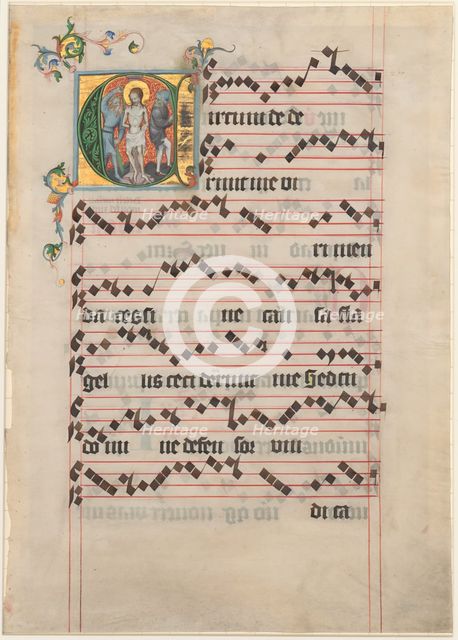 Circum de de
runt me vi
ri men
da ces si ne cau sa fla
gel lis ceci derunt me Sed tu
do mi ne defen sor vin
di ca
©
Heritage
Heritage
Heritage
Heritage
Heritage
Heritage